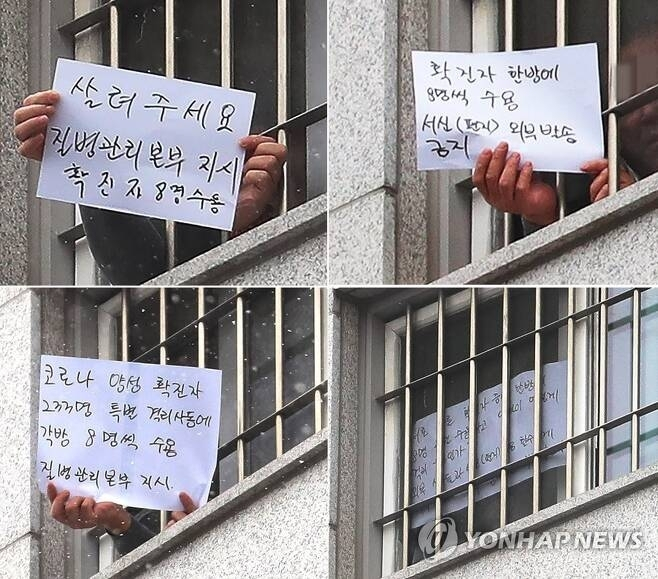 살려주세요
질병관리본부 지시
확진자 8명수용
확진자 한방에
8명씩 수용
서신(편지) 외부발송
금지
코로나 양성 확진자
233명 특변 격리사동에
각방 8명씩 수용
질병관리본부 지시.
YONHAP NEWS